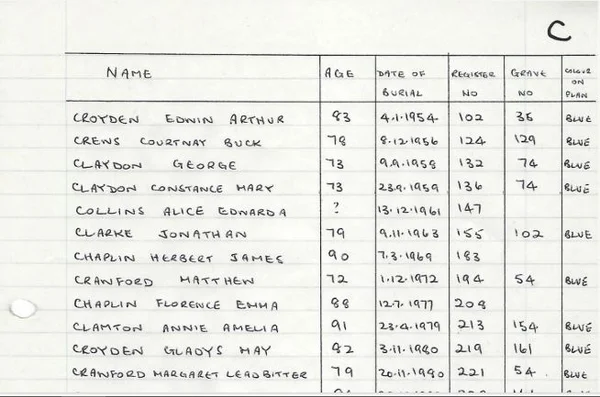 C
NAME AGE DATE OF BURIAL REGISTER NO GRAVE NO COLOUR ON PLAN
CROYDEN EDWIN ARTHUR 83 4.1.1954 102 35 BLUE
CREWS COURTNAY BUCK 78 8.12.1956 124 129 BLUE
CLAYDON GEORGE 73 9.9.1958 132 74 BLUE
CLAYDON CONSTANCE MARY 73 23.9.1959 136 74 BLUE
COLLINS ALICE EDWARDA ? 13.12.1961 147
CLARKE JONATHAN 79 9.11.1963 155 102 BLUE
CHAPLIN HERBERT JAMES 90 7.3.1969 183
CRAWFORD MATTHEW 72 1.12.1972 194 54 BLUE
CHAPLIN FLORENCE EMMA 88 12.7.1977 208
CLAMTON ANNIE AMELIA 91 23.4.1979 213 154 BLUE
CROYDEN GLADYS MAY 82 3.11.1980 219 161 BLUE
CRAWFORD MARGARET LEADBITTER 79 20.11.1980 221 54 BLUE